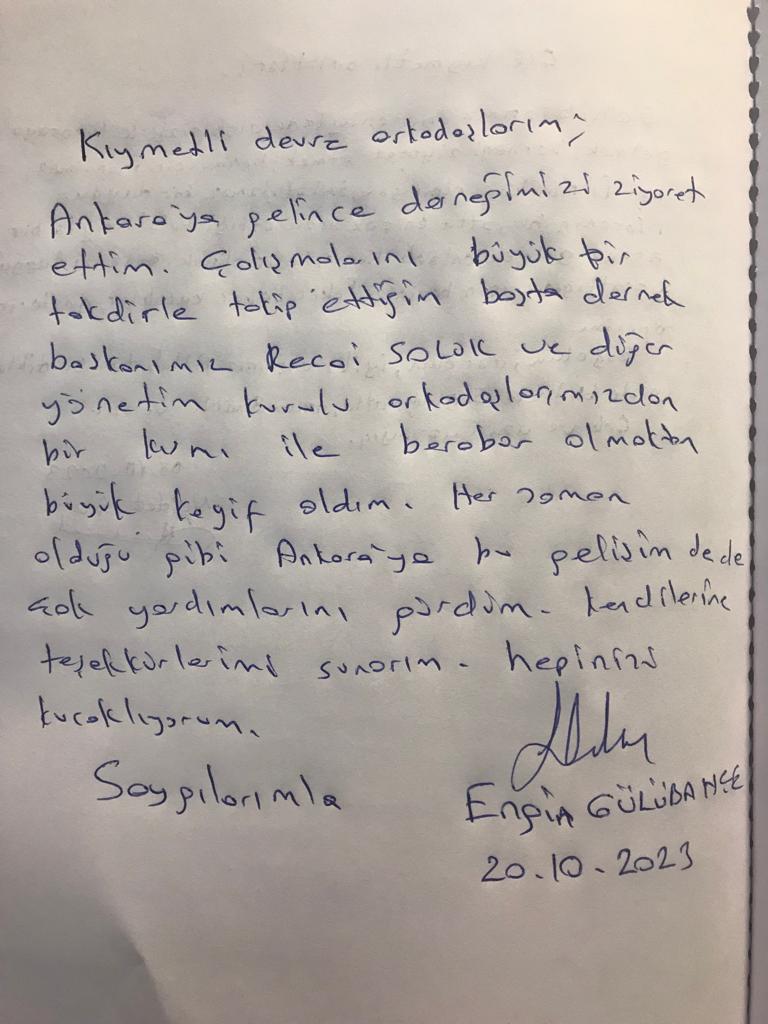 Kıymetli devre arkadaşlarım;
Ankara'ya gelince derneğimizi ziyaret
ettim. Çalışmalarını büyük bir
takdirle takip ettiğim başta dernek
başkanımız Recai SOLAK ve diğer
yönetim kurulu arkadaşlarımızdan
bir kısmı ile beraber olmaktan
büyük keyif aldım. Her zaman
olduğu gibi Ankara'ya bu gelişim dede
çok yardımlarını gördüm. Kendilerine
teşekkürlerimi sunarım. hepinizi
kucaklıyorum.
Saygılarımla
Engin GÜLÜBAHÇE
20.10.2023